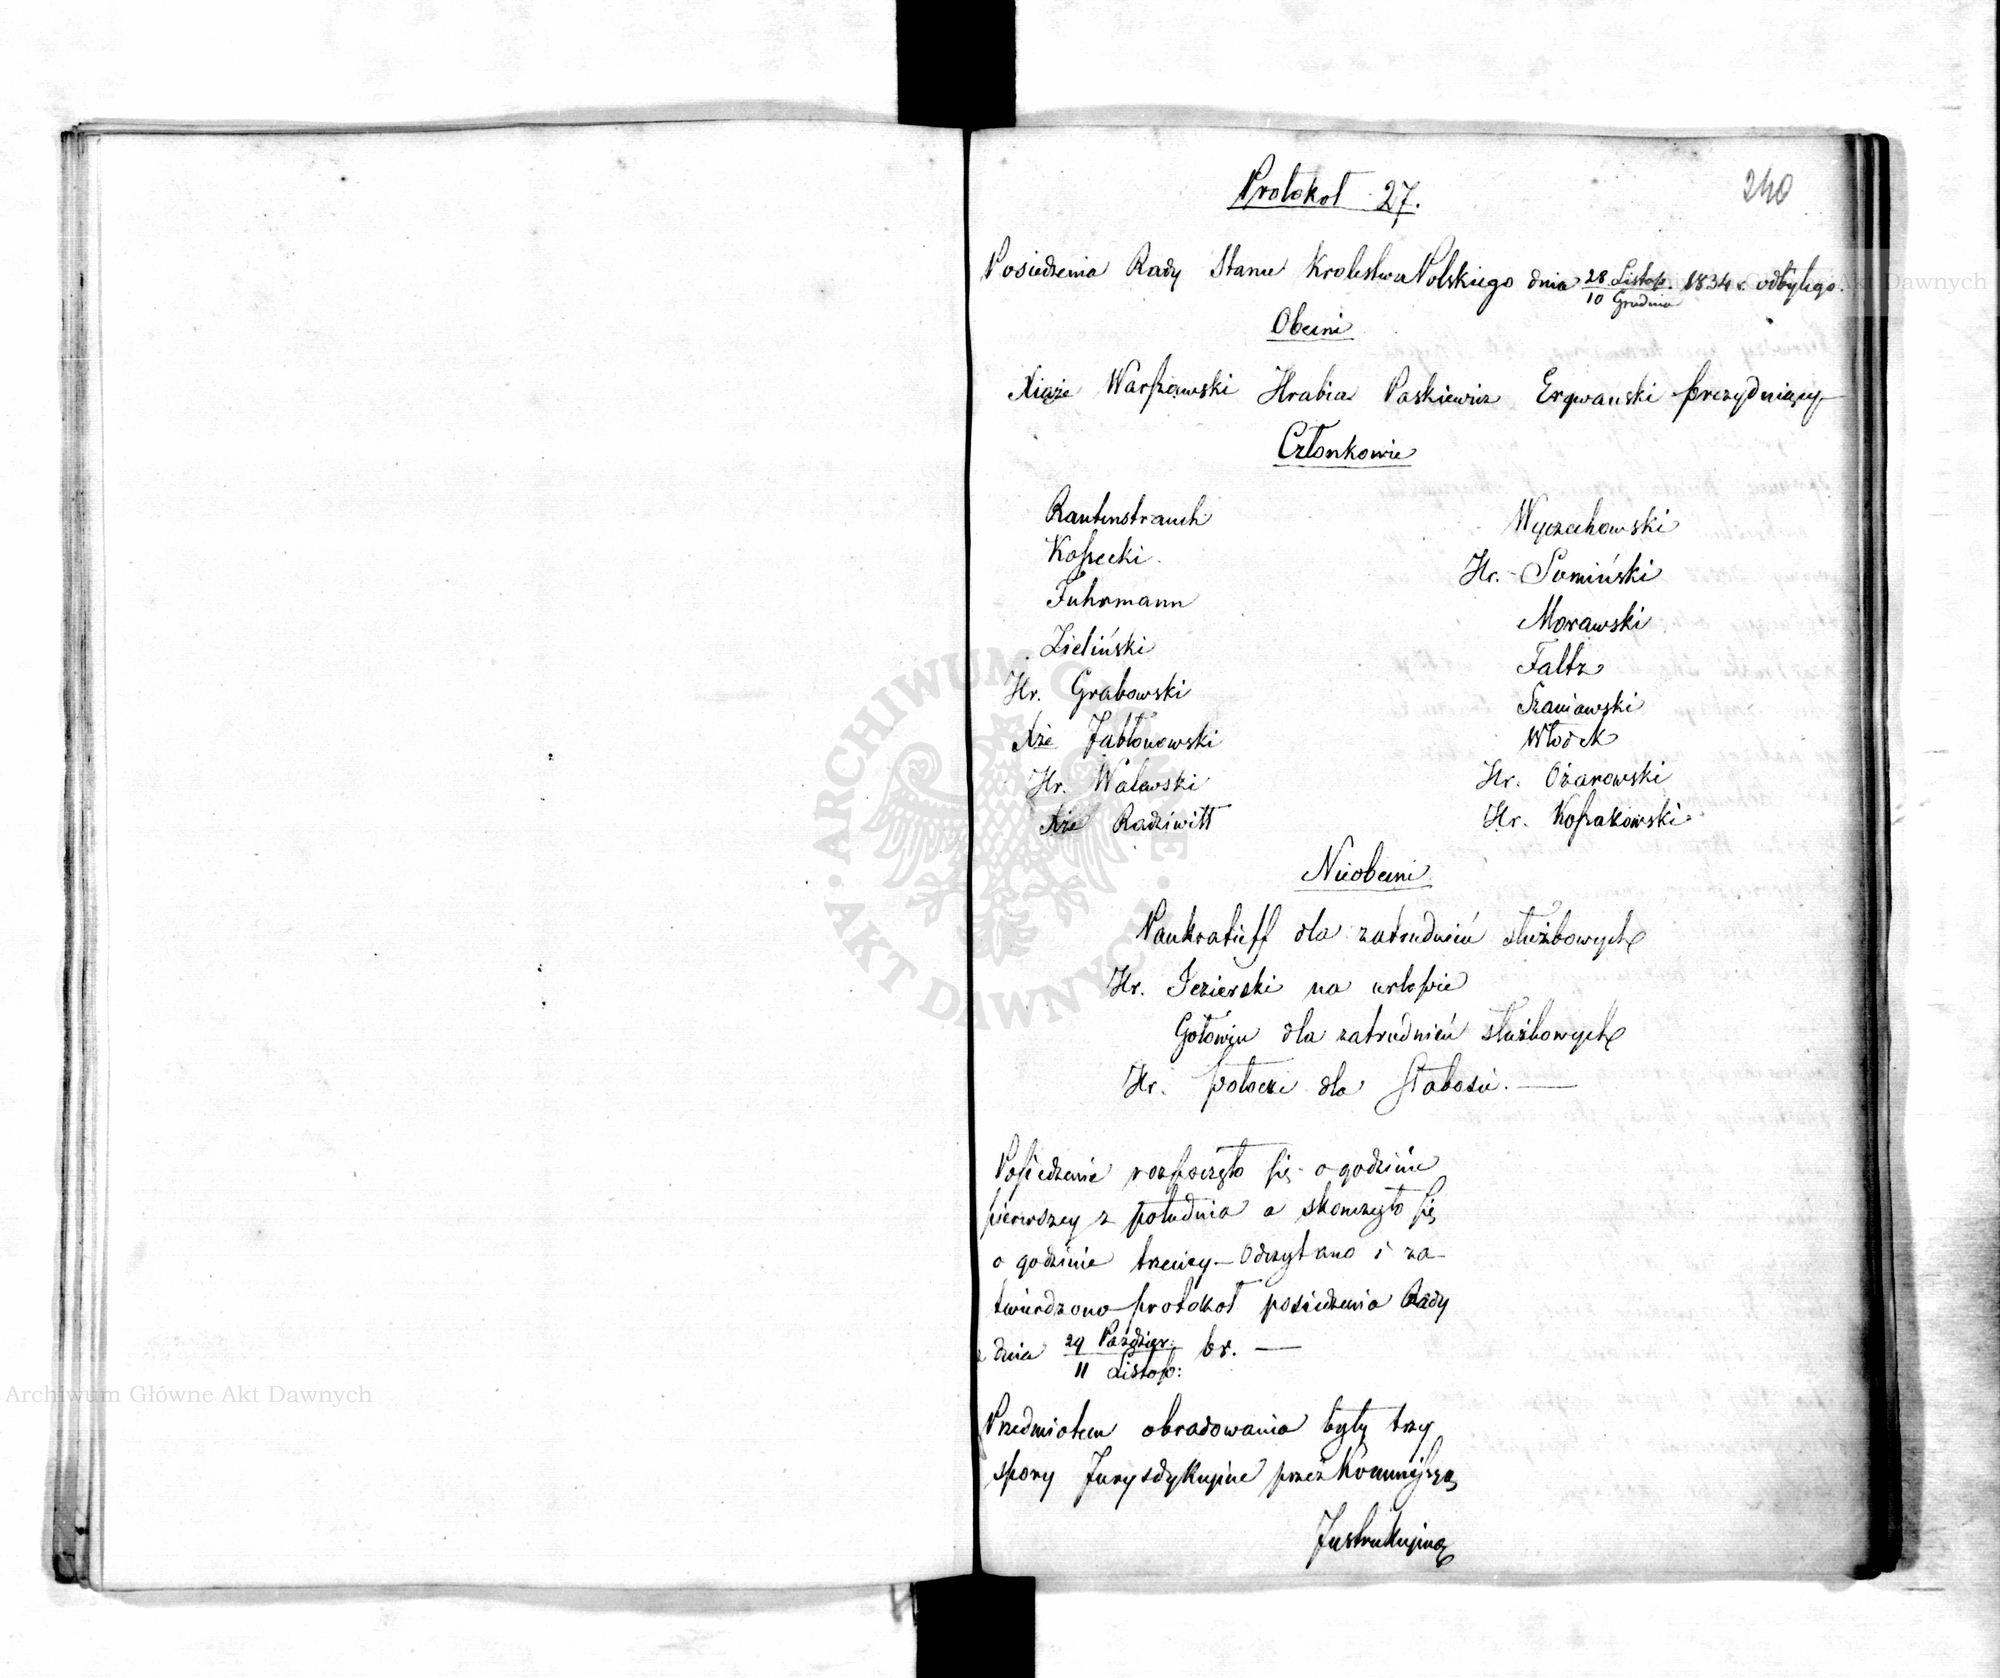 240
Protokoł 27.
Posiedzenia Rady Stanu Krolestwa Polskiego dnia 28 Listop. / 10 Grudnia 1834 r. odbytego.
Obecni
Xiąże Warszawski Hrabia Paskiewicz Erywanski prezydujący
Członkowie
Rautenstrauch
Kossecki
Fuhrmann
Zieliński
Hr. Grabowski
Xże Jabłonowski
Hr. Walewski
Xże Radziwiłł
Wyczechowski
Hr. Sumiński
Morawski
Faltz
Szaniawski
Włodek
Hr. Ożarowski
Hr. Kossakowski
Nieobecni
Pankratieff dla zatrudnień służbowych
Hr. Jezierski na urlopie
Gołowin dla zatrudnień służbowych
Hr. Potocki dla słabości. —
Posiedzenie rozpoczęło się o godzinie
pierwszey z południa a skonczyło się
o godzinie trzeciey – Odczytano i za-
twierdzono protokoł posiedzenia Rady
z dnia 29 Paździer: / 11 Listop: br. —
Przedmiotem obradowania były trzy
spory Jurysdykcyine przez Kommissyą
Instrukcyiną
ARCHIWUM GŁÓWNE AKT DAWNYCH
Archiwum Główne Akt Dawnych
Archiwum Główne Akt Dawnych